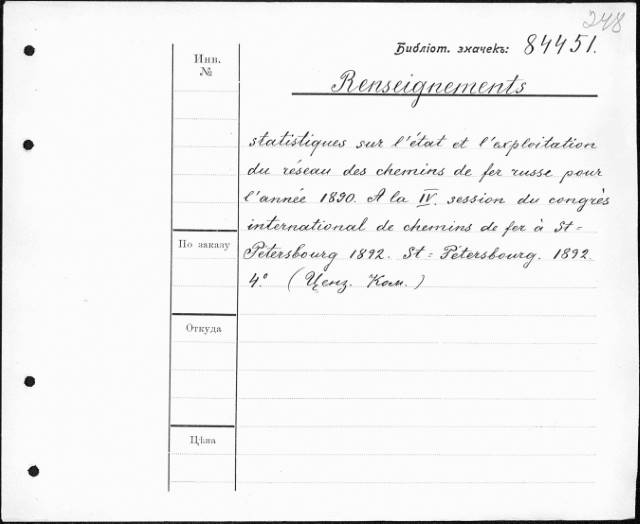 248
Библіот. значекъ: 84451.
Инв. №
Renseignements
statistiques sur l'état et l'exploitation
du réseau des chemins de fer russe pour
l'année 1890. A la IV. session du congrès
international de chemins de fer à St=
По заказу
Pétersbourg 1892. St=Pétersbourg. 1892.
4.° (Ценз. Ком.)
Откуда
Цѣна